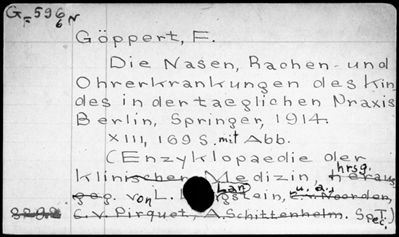 G 596 N
Göppert, E.
Die Nasen, Rachen- und
Ohrerkrankungen des Kin
des in der taeglichen Praxis
Berlin, Springer, 1914.
XIII, 169 S. mit Abb.
(Enzyklopaedie der
klinischen Medizin, hrsg.
von L. Langstein, u. a.
C. v. Pirquet, A. Schittenhelm. Spec. T.)